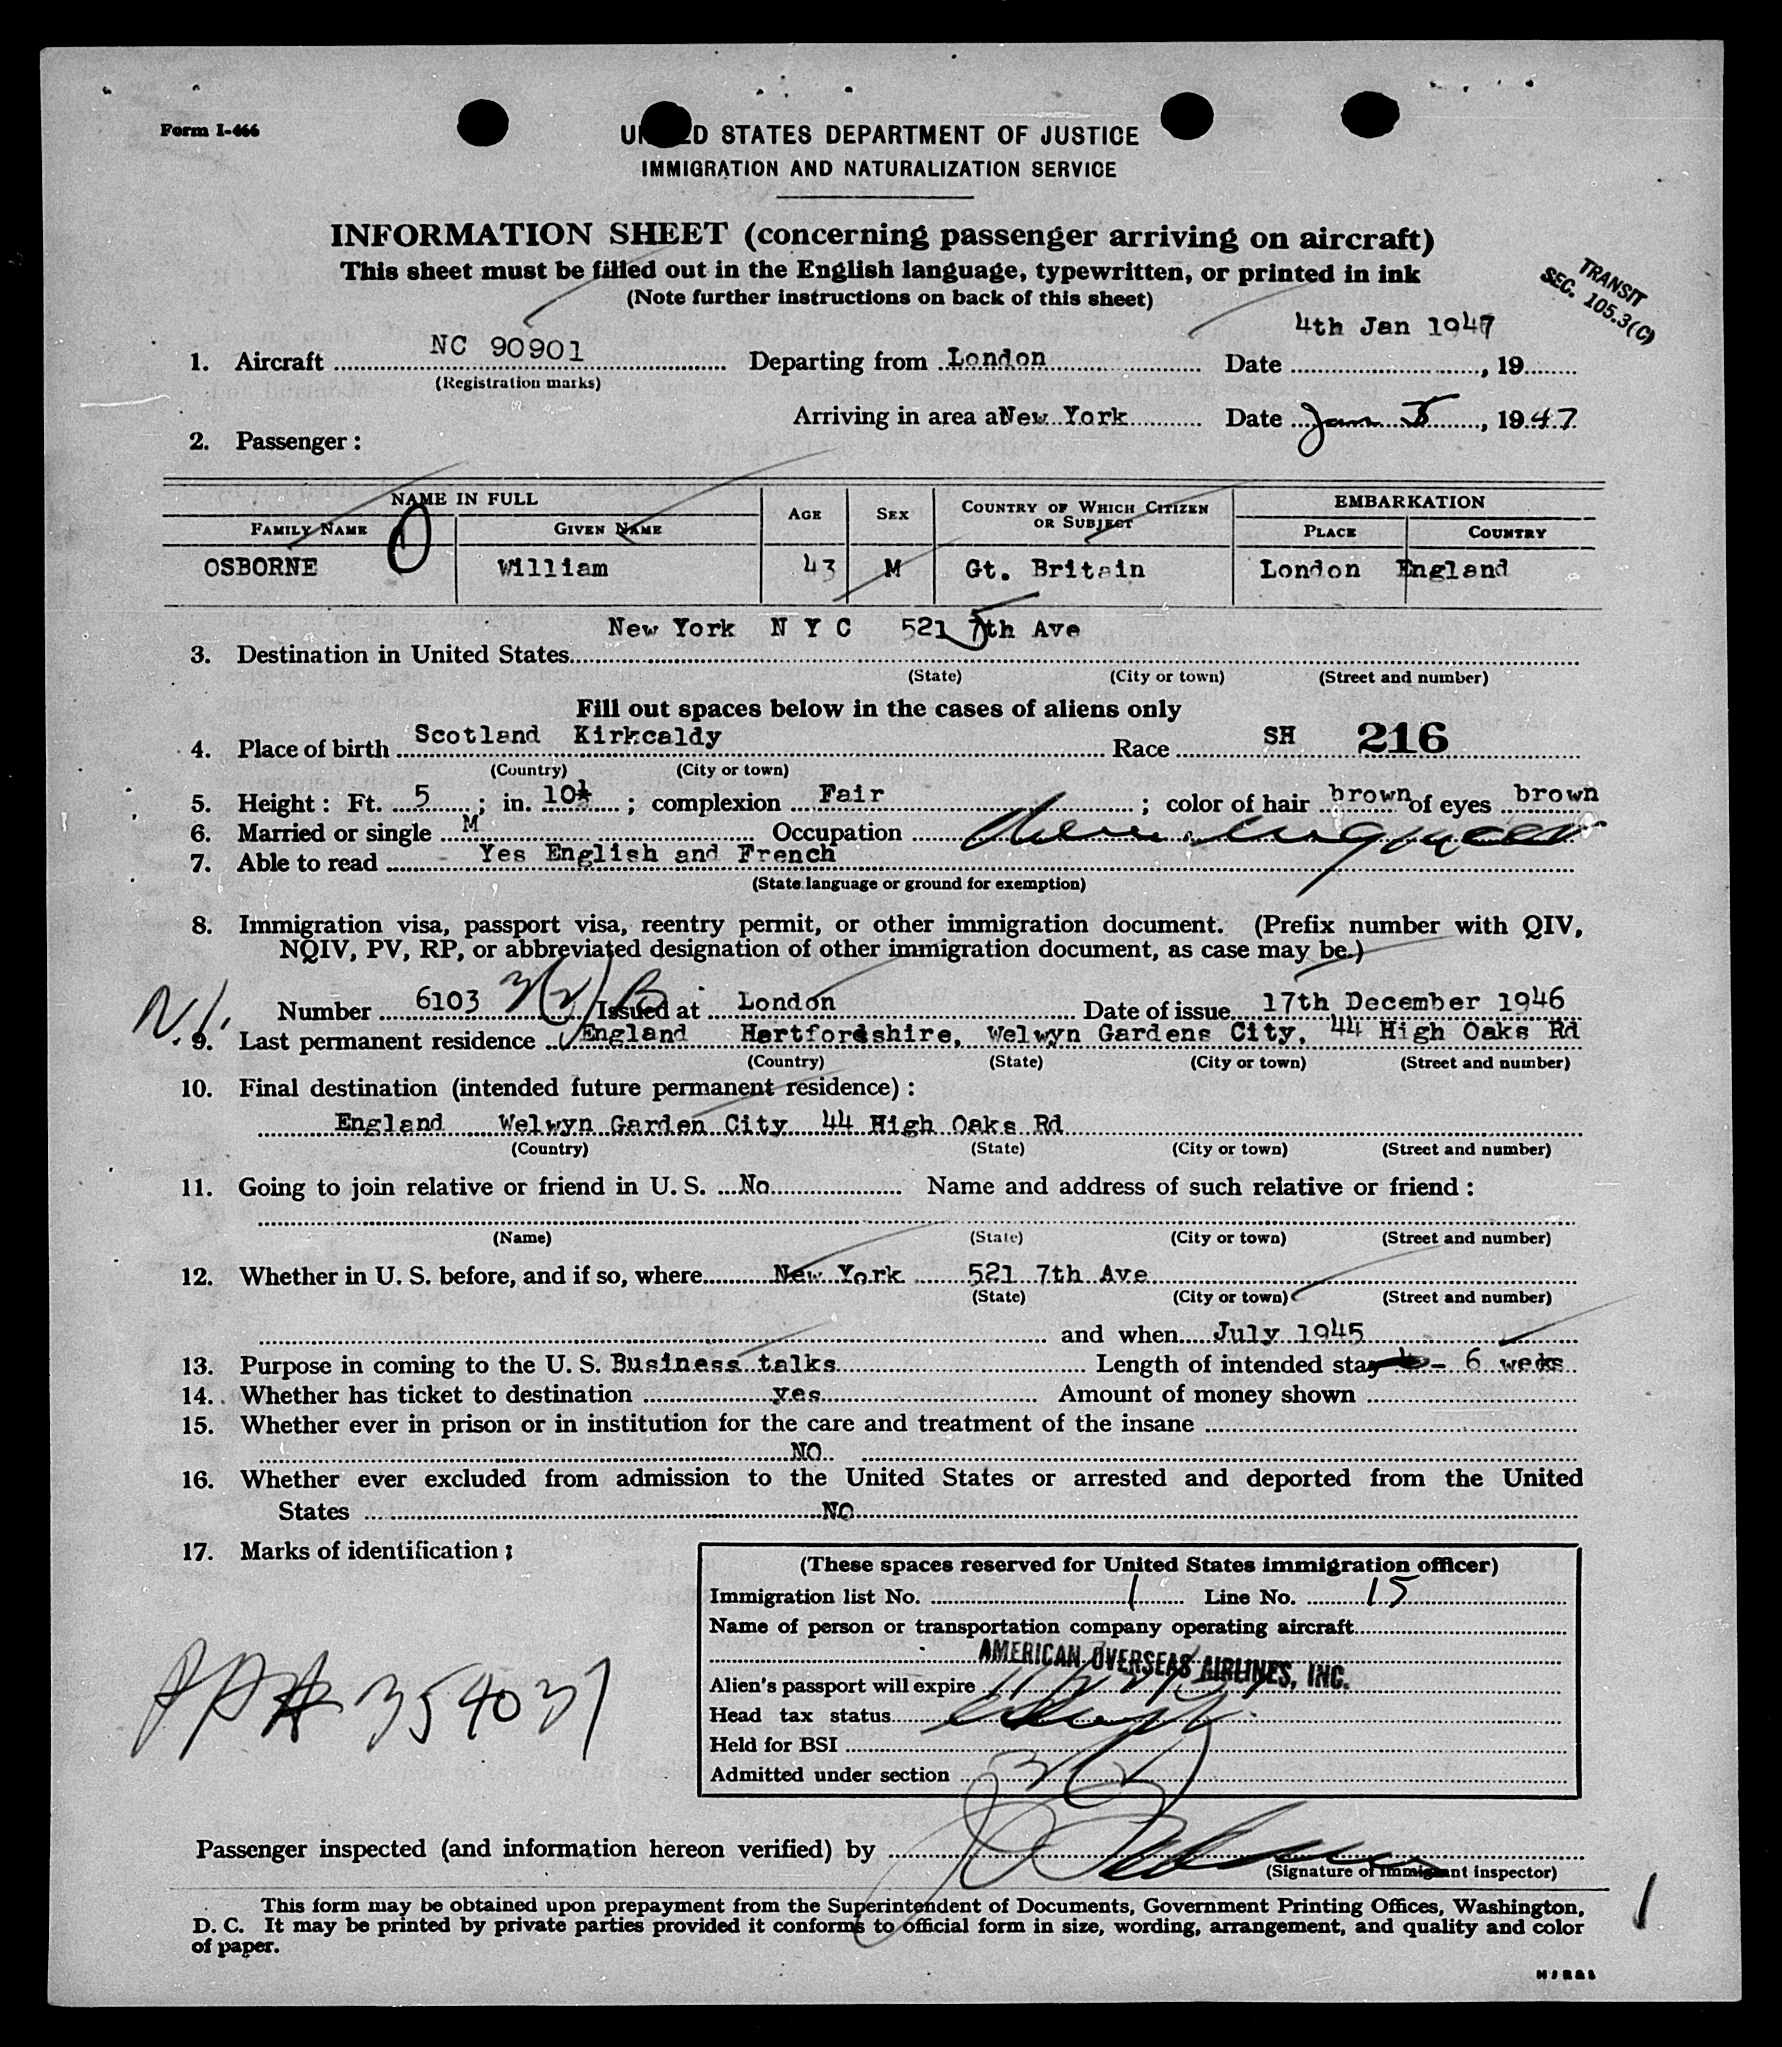 Form I-466
UNITED STATES DEPARTMENT OF JUSTICE
IMMIGRATION AND NATURALIZATION SERVICE
INFORMATION SHEET (concerning passenger arriving on aircraft)
This sheet must be filled out in the English language, typewritten, or printed in ink
(Note further instructions on back of this sheet)
TRANSIT
SEC. 105.3(C)
4th Jan 1947
1. Aircraft NC 90901 Departing from London Date , 19
(Registration marks)
Arriving in area at New York Date Jan 5, 1947
2. Passenger:
NAME IN FULL AGE SEX COUNTRY OF WHICH CITIZEN OR SUBJECT EMBARKATION
FAMILY NAME GIVEN NAME PLACE COUNTRY
OSBORNE O William 43 M Gt. Britain London England
New York N Y C 521 5th Ave
3. Destination in United States
(State) (City or town) (Street and number)
Fill out spaces below in the cases of aliens only
4. Place of birth Scotland Kirkcaldy Race SH 216
(Country) (City or town)
5. Height: Ft. 5; in. 10½; complexion Fair; color of hair brown of eyes brown
6. Married or single M Occupation Chem. Engineer
7. Able to read Yes English and French
(State language or ground for exemption)
8. Immigration visa, passport visa, reentry permit, or other immigration document. (Prefix number with QIV,
NQIV, PV, RP, or abbreviated designation of other immigration document, as case may be.)
Number 6103 3(2) B Issued at London Date of issue 17th December 1946
9. Last permanent residence England Hertfordshire, Welwyn Gardens City, 44 High Oaks Rd
(Country) (State) (City or town) (Street and number)
10. Final destination (intended future permanent residence):
England Welwyn Garden City 44 High Oaks Rd
(Country) (State) (City or town) (Street and number)
11. Going to join relative or friend in U. S. No Name and address of such relative or friend:
(Name) (State) (City or town) (Street and number)
12. Whether in U. S. before, and if so, where New York 521 7th Ave
(State) (City or town) (Street and number)
and when July 1945
13. Purpose in coming to the U. S. Business talks Length of intended stay - 6 weeks
14. Whether has ticket to destination yes Amount of money shown
15. Whether ever in prison or in institution for the care and treatment of the insane
NO
16. Whether ever excluded from admission to the United States or arrested and deported from the United
States NO
17. Marks of identification:
(These spaces reserved for United States immigration officer)
Immigration list No. 1 Line No. 15
Name of person or transportation company operating aircraft
AMERICAN OVERSEAS AIRLINES, INC.
Alien's passport will expire
Head tax status
PP# 354037
Held for BSI
Admitted under section 3(2)
Passenger inspected (and information hereon verified) by
(Signature of immigrant inspector)
This form may be obtained upon prepayment from the Superintendent of Documents, Government Printing Offices, Washington,
D. C. It may be printed by private parties provided it conforms to official form in size, wording, arrangement, and quality and color
of paper.